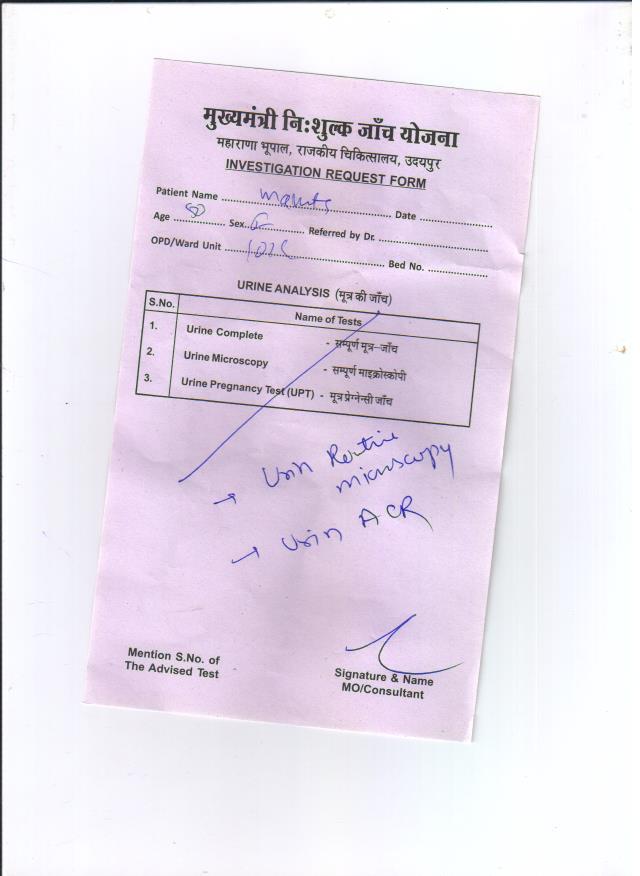 मुख्यमंत्री नि:शुल्क जाँच योजना
महाराणा भूपाल, राजकीय चिकित्सालय, उदयपुर
INVESTIGATION REQUEST FORM
Patient Name Date
Age Sex Referred by Dr.
OPD/Ward Unit Bed No.
URINE ANALYSIS (मूत्र की जाँच)
S.No. Name of Tests
1. Urine Complete - सम्पूर्ण मूत्र-जाँच
2. Urine Microscopy - सम्पूर्ण माइक्रोस्कोपी
3. Urine Pregnancy Test (UPT) - मूत्र प्रेग्नेन्सी जाँच
→ Urin Routine
microscopy
→ Urin ACR
Mention S.No. of
The Advised Test
Signature & Name
MO/Consultant